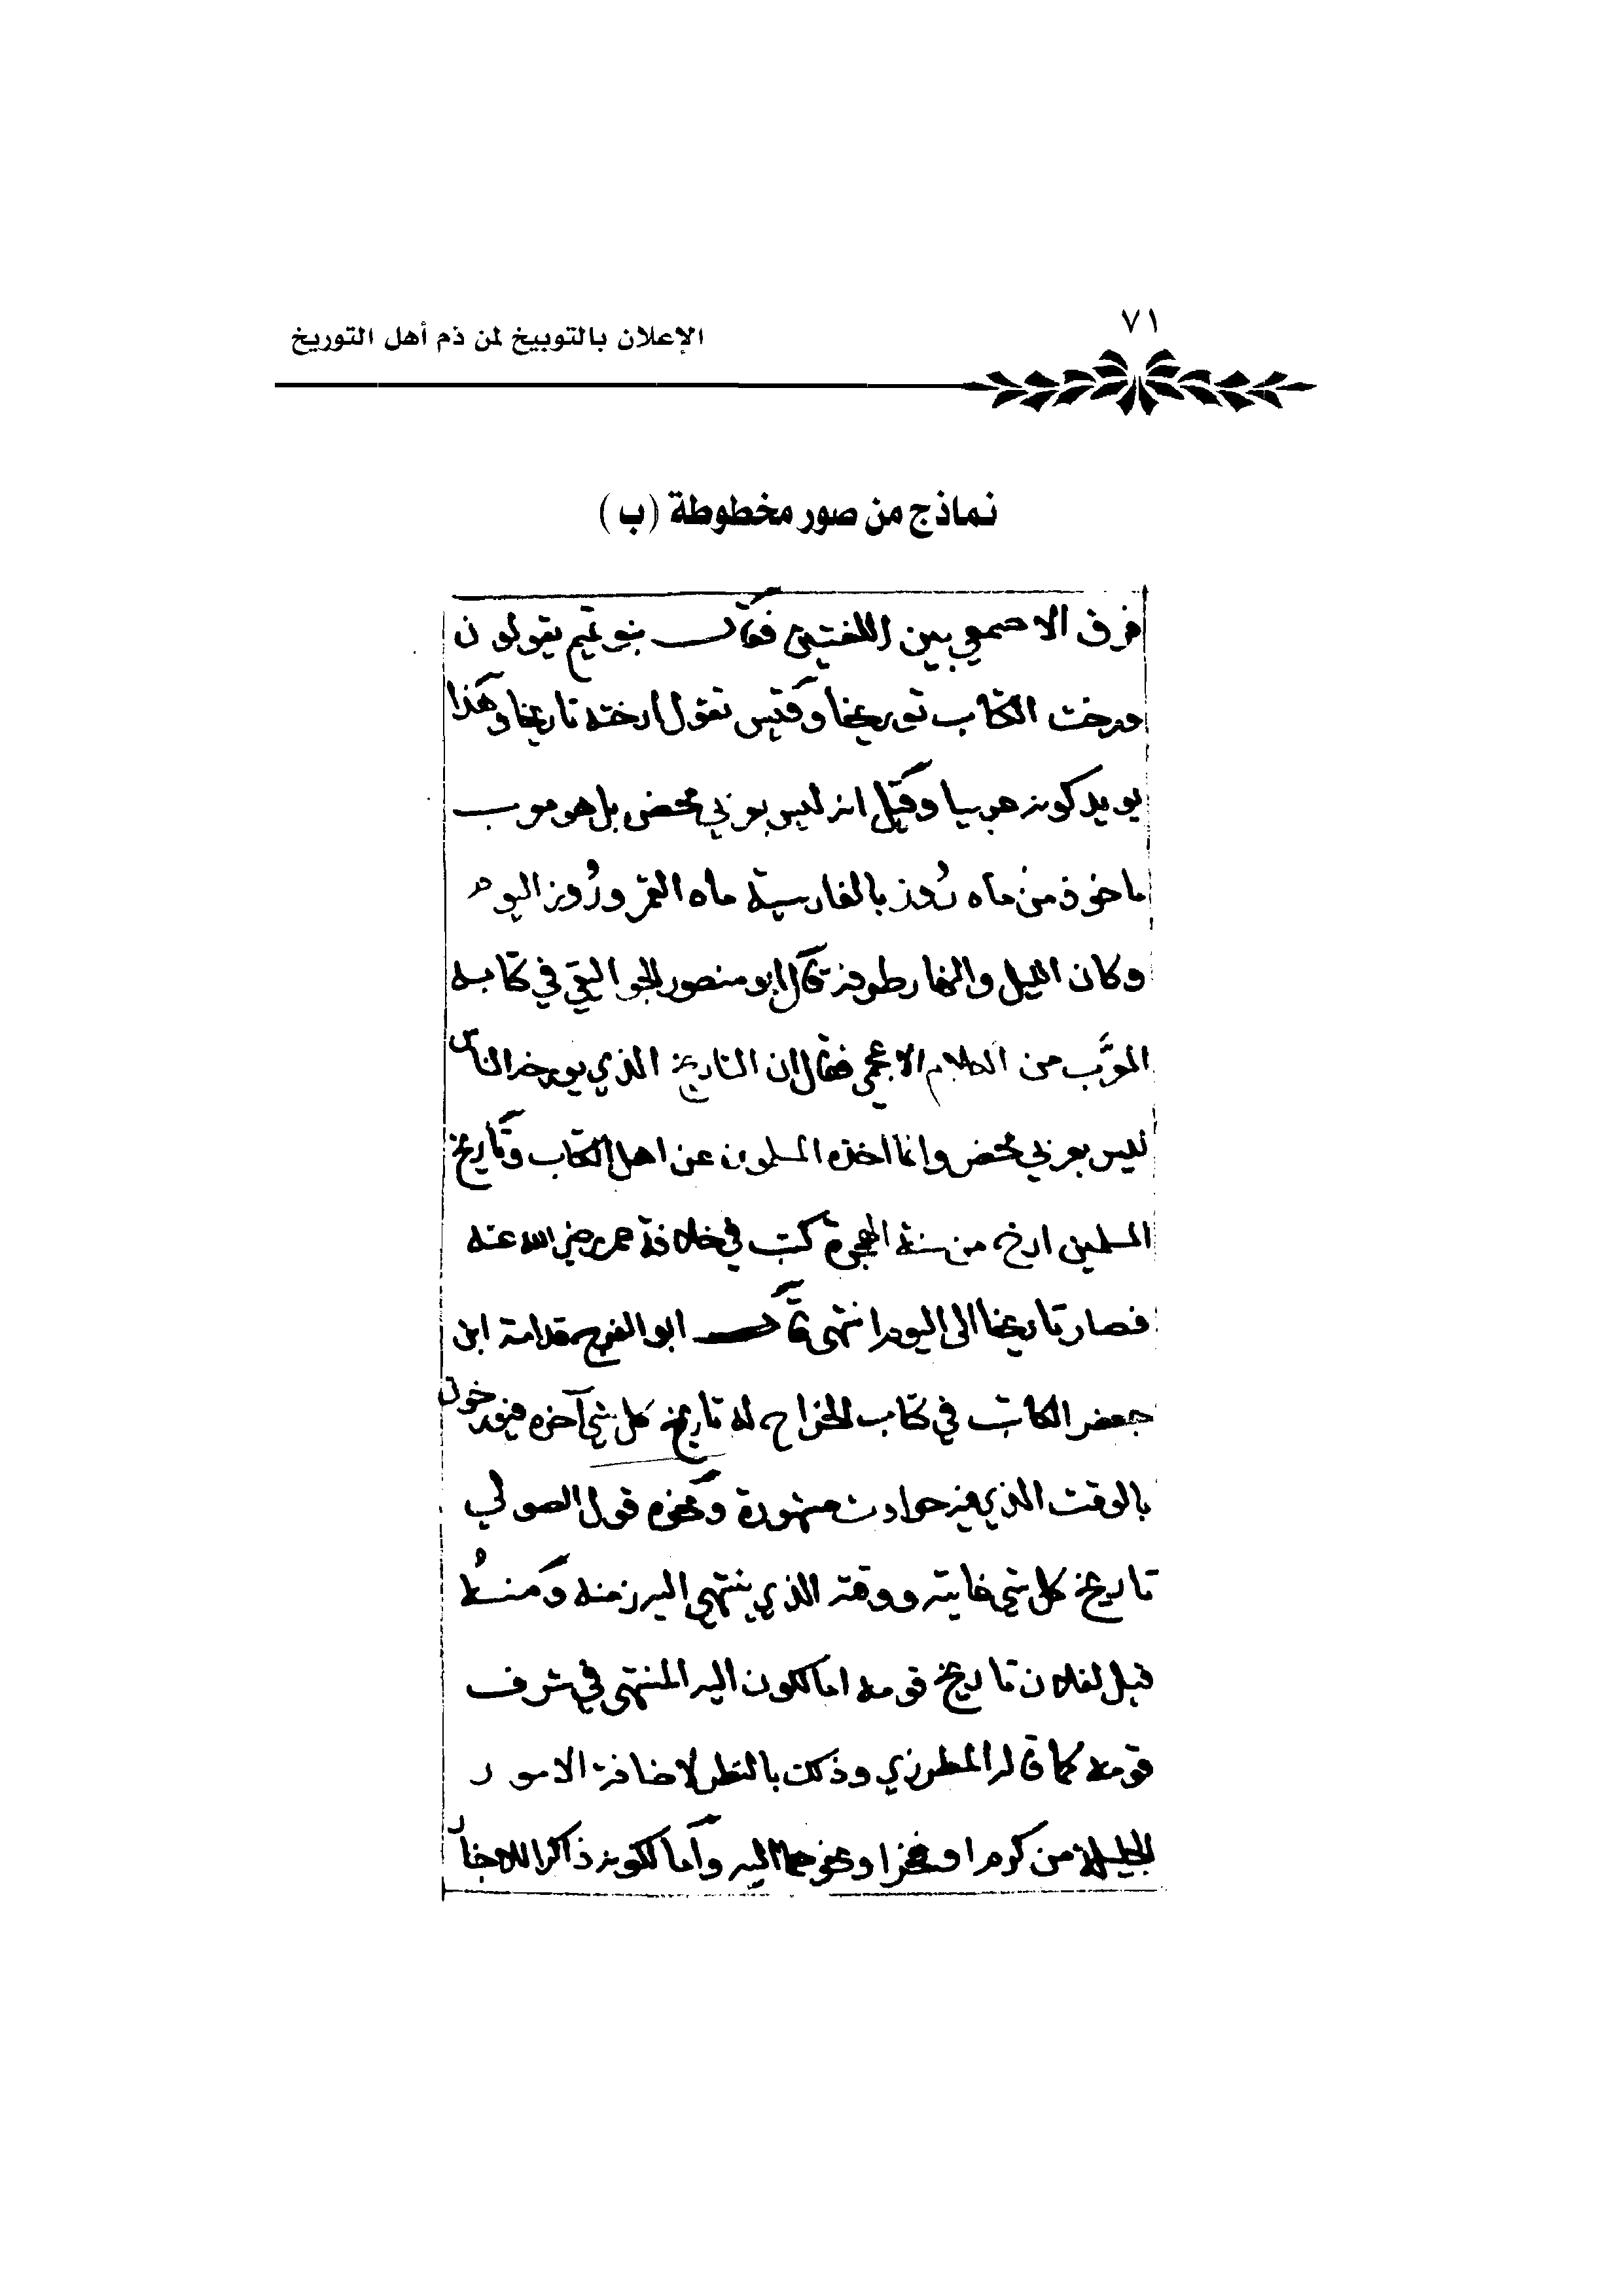 ٧١
الإعلان بالتوبيخ لمن ذم أهل التوريخ
نماذج من صور مخطوطة (ب)
فرق الاصمعي بين اللغتين فقال بنو تميم يقولون
ورخت الكتاب توريخا وقيس تقول ارخته تاريخا وهذا
يويد كونه عربيا وقيل انه ليس بعربي محض بل هو معرب
ماخوذ من ماه روز بالفارسية ماه القمر وروز اليوم
وكان الليل والنهار طرفه قال ابو منصور الجواليقي في كتابه
المعرَّب من الكلام الاعجمي فقال ان التاريخ الذي يورخه الناس
ليس بعربي محض وانما اخذه المسلمون عن اهل الكتاب وتاريخ
المسلمين ارخ من سنة الهجرة كتب في خلافة عمر رضي الله عنه
فصار تاريخا الى اليوم انتهى قال ابو الفرج قدامة ابن
جعفر الكاتب في كتاب الخراج له تاريخ كل شي آخره فيورخون
بالوقت الذي فيه حوادث مشهورة ونحوه قول الصولي
تاريخ كل شي غايته ووقته الذي ينتهي اليه زمنه ومنه
قيل لفلان تاريخ قومه اما لكون اليه المنتهى في شرف
قومه كما قاله المطرزي وذلك بالنظر لاضافة الامور
الجليلة من كرم او فخر او نحوهما اليه واما لكونه ذاكرا للاخبار